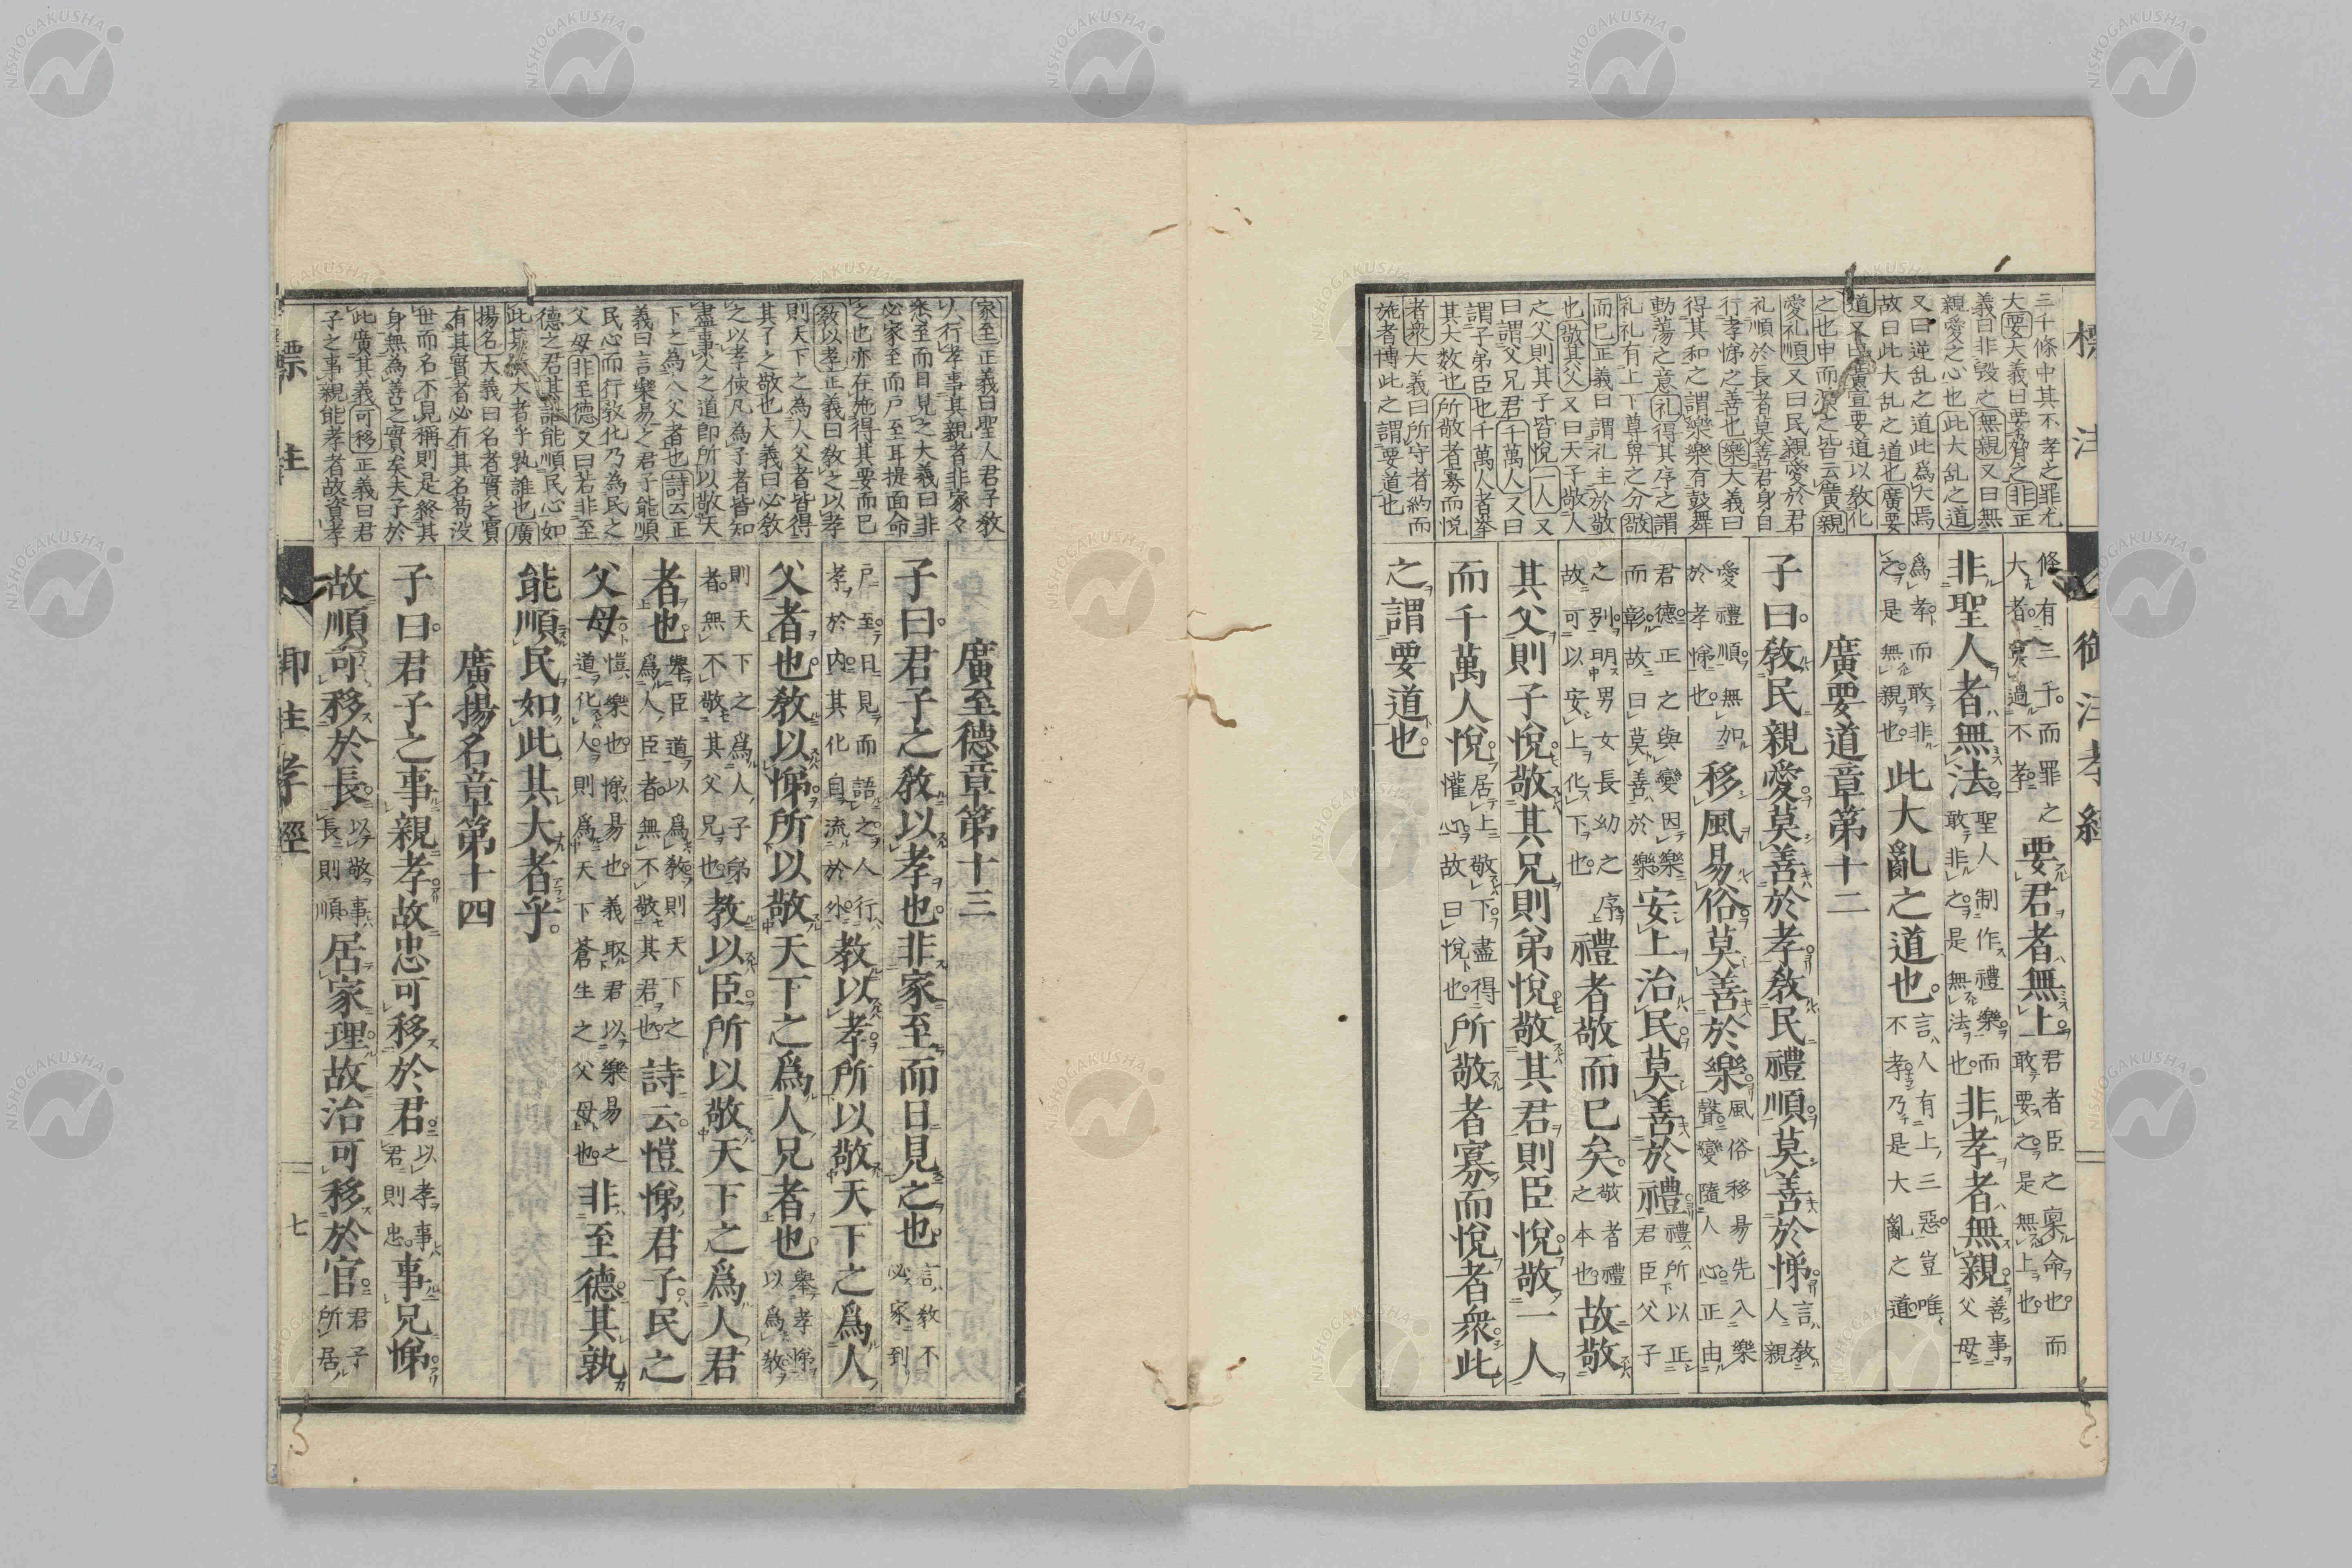 標注
御注孝經
三千條中其不孝之罪尤
大要大義曰要脅之非正
義曰非毀之無親又曰無
親愛之心也此大乱之道
又曰逆乱之道此為大焉
故曰此大乱之道也廣要
之也申而演之皆云廣親
愛礼順又曰民親愛於君
礼順於長者莫善君身自
行孝悌之善也樂大義曰
得其和之謂樂樂有鼓舞
動蕩之意礼得其序之謂
礼礼有上下尊卑之分敬
而已正義曰謂礼主於敬
也敬其父又曰天子敬人
之父則其子皆悅一人又
曰謂父兄君千萬人又曰
謂子弟臣也千萬人者舉
其大数也所敬者寡而悦
者衆大義曰所守者約而
施者博此之謂要道也
條有三千而罪之
大者莫過不孝
要君者無上
君者臣之稟命也而
敢要之是無上也
非聖人者無法
聖人制作禮樂而
敢非之是無法也
非孝者無親
善事父母
爲孝而敢非
之是無親也
此大亂之道也
言人有上三惡豈唯
不孝乃是大亂之道
廣要道章第十二
子曰教民親愛莫善於孝教民禮順莫善於悌
言教人親
愛禮順無加
於孝悌也
移風易俗莫善於樂
風俗移易先入樂
聲變隨人心正由
君德正之與變因樂
而彰故曰莫善於樂
安上治民莫善於禮
禮所以正
君臣父子
之列明男女長幼之序
故可以安上化下也
禮者敬而已矣
敬者禮
之本也
故敬
其父則子悅敬其兄則弟悅敬其君則臣悅敬一人
而千萬人悅
居上敬下盡得
懽心故曰悅也
所敬者寡而悅者衆此
之謂要道也
家至正義曰聖人君子教
人行孝事其親者非家々
悉至而日見之大義曰非
必家至而戸至耳提面命
之也亦在施得其要而已
教以孝正義曰教之以孝
則天下之為人父者皆得
其子之敬也大義曰必教
之以孝使凡為子者皆知
盡事父之道即所以敬天
下之為人父者也詩云正
義曰言樂易之君子能順
民心而行教化乃為民之
父母非至德又曰若非至
德之君其誰能順民心如
此其大者乎孰誰也廣
揚名大義曰名者實之賓
有其實者必有其名苟没
世而名不見稱則是終其
身無為善之實矣夫子於
此廣其義可移正義曰君
子之事親能孝者故資孝
廣至德章第十三
子曰君子之教以孝也非家至而日見之也
言教不
必家到
戸至日見而語之人行
孝於内其化自流於外
教以孝所以敬天下之爲人
父者也教以悌所以敬天下之爲人兄者也
舉孝悌
以爲教
則天下之爲人子弟
者無不敬其父兄也
教以臣所以敬天下之爲人君
者也
舉臣道以爲教則天下之
爲人臣者無不敬其君也
詩云愷悌君子民之
父母
愷樂也悌易也義取君以樂易之
道化人則爲天下蒼生之父母也
非至德其孰
能順民如此其大者乎
廣揚名章第十四
子曰君子之事親孝故忠可移於君
以孝事
君則忠
事兄悌
故順可移於長
以敬事
長則順
居家理故治可移於官
君子
所居
標注
御注孝經
七